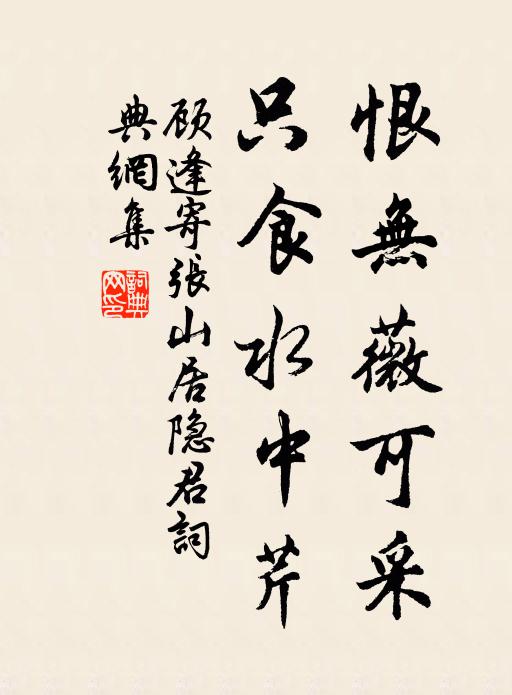 恨無薇可采
只食水中芹
顾逢寄張山居隐君詞
典網集
詞典
网印